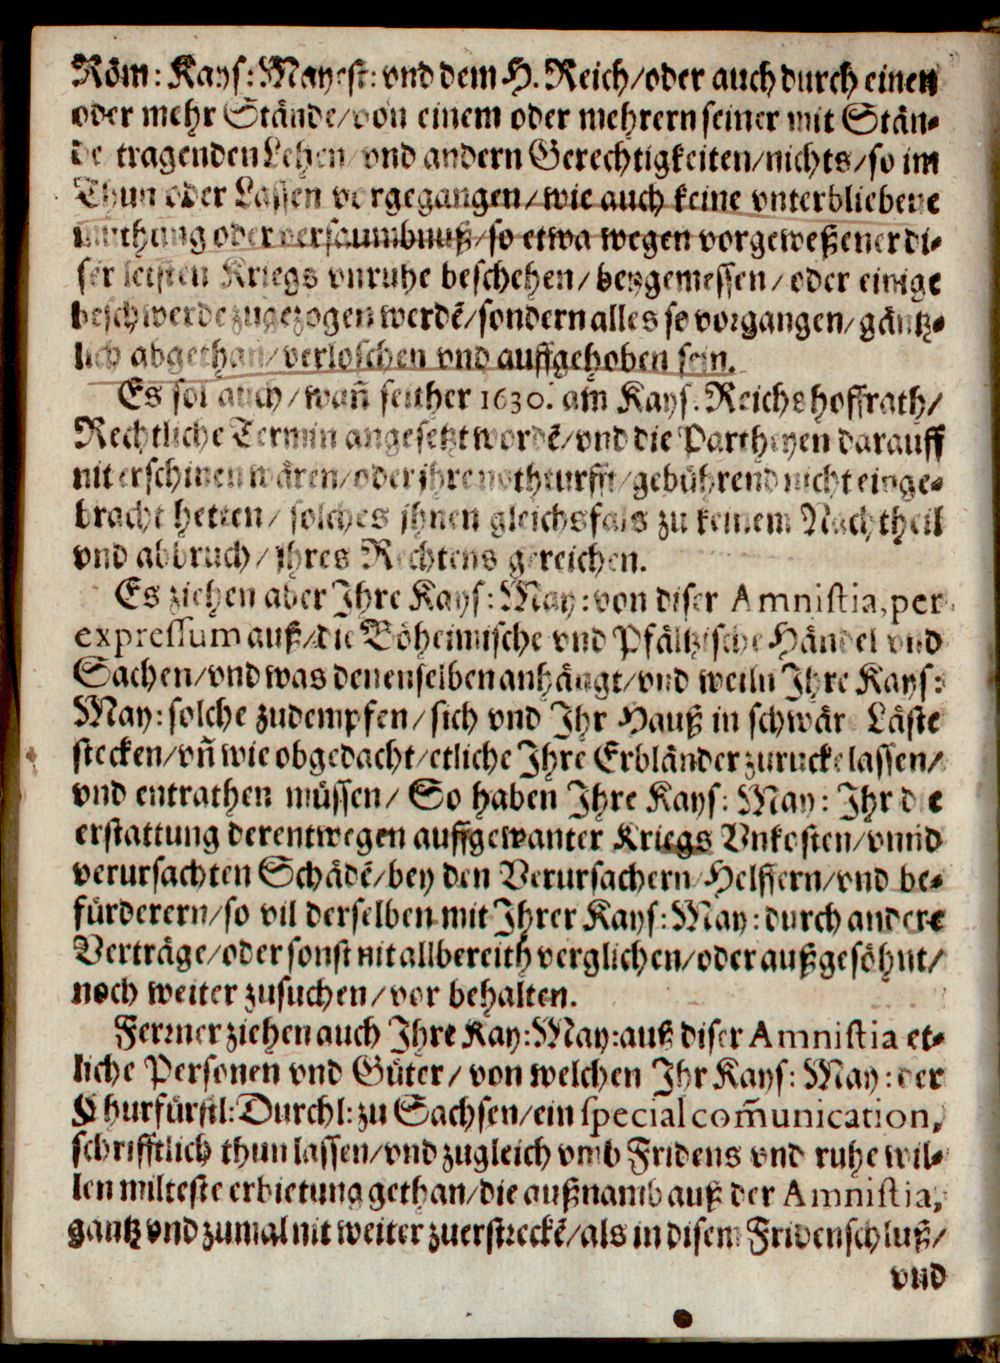 Röm: Kays: Mayest: vnd dem H. Reich/oder auch durch einen
oder mehr Stände/von einem oder mehrern seiner mit Stän-
de tragenden Lehen vnd andern Gerechtigkeiten/nichts/so im
Thun oder Lassen vorgegangen/wie auch keine vnterbliebene
muthung oder versaumbnuß/so etwa wegen vorgeweßener di-
ser letsten Kriegs vnruhe beschehen/beygemessen/oder einige
beschwerde zugezogen werdē/sondern alles so vorgangen/gäntz-
lich abgethan/verloschen vnd auffgehoben sein.
Es sol auch/wañ seither 1630. am Kays. Reichshoffrath/
Rechtliche Termin angesetzt wordē/vnd die Partheyen darauff
nit erschinen wären/oder jhre nothturfft/gebührend nicht einge-
bracht hetten/solches jhnen gleichsfals zu keinem Nachtheil
vnd abbruch/jhres Rechtens gereichen.
Es ziehen aber Ihre Kays: May: von diser Amnistia, per
expressum auß/die Böheimische vnd Pfältzische Händel vnd
Sachen/vnd was denenselben anhängt/vnd weiln Ihre Kays:
May: solche zudempfen/sich vnd Ihr Hauß in schwär Läste
stecken/vñ wie obgedacht/etliche Ihre Erbländer zurucke lassen/
vnd entrathen müssen/So haben Ihre Kays: May: Ihr die
erstattung derentwegen auffgewanter Kriegs Vnkosten/vnnd
verursachten Schädē/bey den Verursachern/Helffern/vnd be-
fürderern/so vil derselben mit Ihrer Kays: May: durch andere
Verträge/oder sonst nit allbereith verglichen/oder außgesöhnt/
noch weiter zusuchen/vor behalten.
Ferrner ziehen auch Ihre Kay: May: auß diser Amnistia et-
liche Personen vnd Güter/von welchen Ihr Kays: May: der
Churfürstl: Durchl: zu Sachsen/ein special com̃unication,
schrifftlich thun lassen/vnd zugleich vmb Fridens vnd ruhe wil-
len milteste erbietung gethan/die außnamb auß der Amnistia,
gantz vnd zumal nit weiter zuerstreckē/als in disem Fridenschluß/
vnd